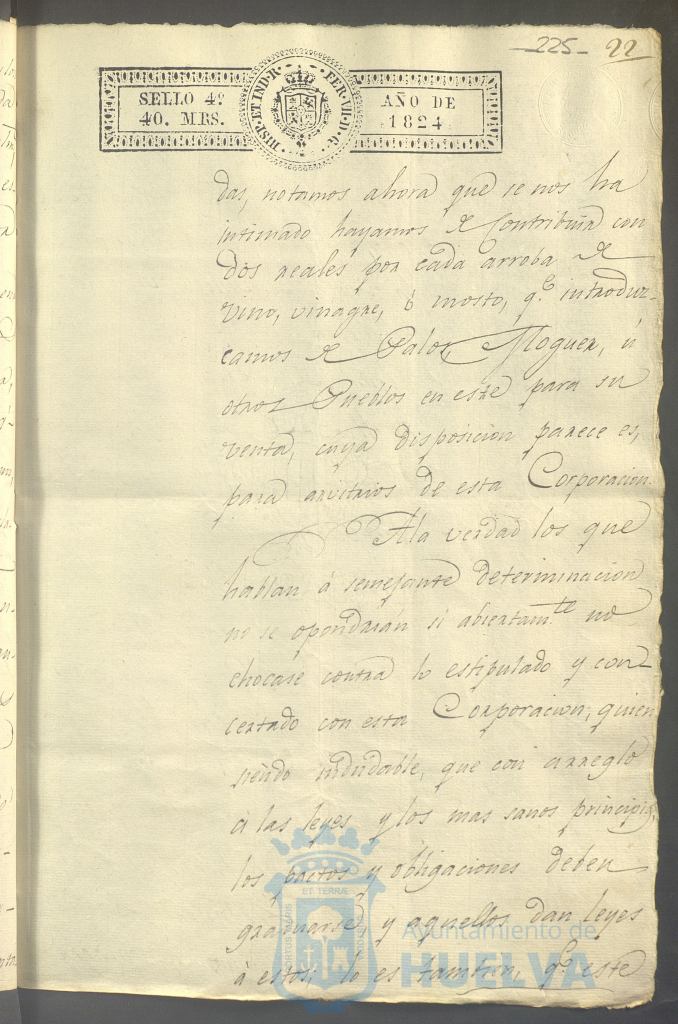 -225- 22
SELLO 4º
40. MRS.
HISP. ET IND. R. FER. VII. D. G.
AÑO DE
1824
das, notamos ahora que se nos ha
intimado hayamos de Contribuir con
dos reales por cada arroba de
vino, vinagre, ó mosto, q.e introduz-
camos de Palos, Moguer, ú
otros Pueblos en este para su
venta, cuya disposicion parece es,
para arvitrios de esta Corporacion.
Ala verdad los que
hablan á semejante determinacion
no se opondrian si abiertam.te no
chocase contra lo estipulado y con-
certado con esta Corporacion; quien
siendo indudable, que con arreglo
a las leyes y los mas sanos principios,
los pactos y obligaciones deben
graduarse, y aquellos dan leyes
á estos; lo es tambien, q.e este
PORTUS MARIS
ET TERRÆ
Ayuntamiento de
HUELVA